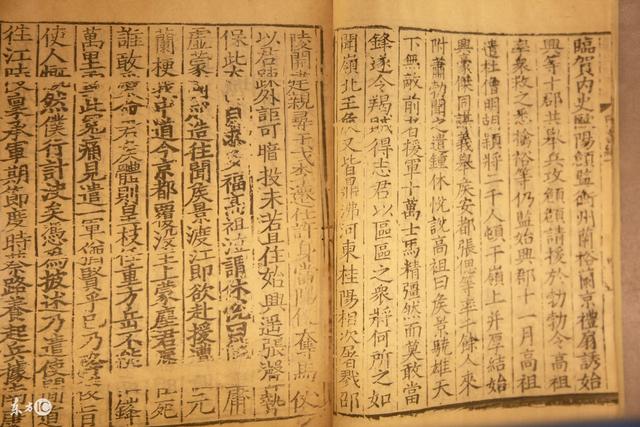 臨賀內史歐陽頠監衡州蘭裕蘭京禮扇誘始
興等十郡共舉兵攻頠頠請援於勃勃令高祖
率衆救之悉擒裕等仍監始興郡十一月高祖
遣杜僧明胡穎將二千人頓于嶺上并厚結始
興豪傑同謀義舉侯安都張偲等率千餘人來
附蕭勃聞之遣鍾休悅說高祖曰侯景驍雄天
下無敵前者援軍十萬士馬精彊然而莫敢當
鋒遂令羯賊得志君以區區之衆將何所之如
聞嶺北王侯又皆鼎沸河東桂陽相次屠戮邵
陵開建親尋干戈李遷仕許身當陽便奪馬仗
以君疎外詎可暗投未若且住始興遙張聲勢
保此太山自求多福高祖泣謂休悅曰庸
虛蒙國成造往聞侯景渡江即欲赴援遭元
蘭梗我中道今京都覆沒主上蒙塵君辱臣死
誰敢愛命君侯體則皇枝任重方岳不能鋒
萬里雪此冤痛見遣一軍猶賢乎已乃降後旨
使人慨然僕行計決矣憑為披述乃遣使間道
往江陵稟承軍期節度時蔡路養起兵據南康
東方IC